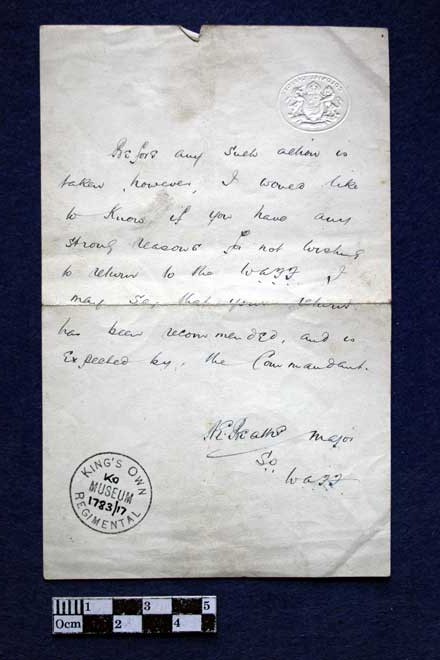 Before any such action is
taken, however, I would like
to know if you have any
strong reasons for not wishing
to return to the W.A.F.F. I
may say that your return
has been recommended, and is
Expected by, the Commandant.
Major
S.O.
W.A.F.F.
KING'S OWN
KO
MUSEUM
1783/17
REGIMENTAL
1 3 5
0cm 2 4